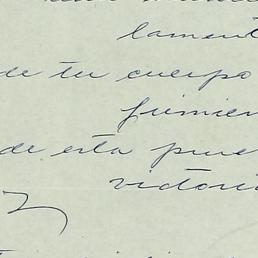 lament
de tu cuerpo
frimien
de esta prue
victori